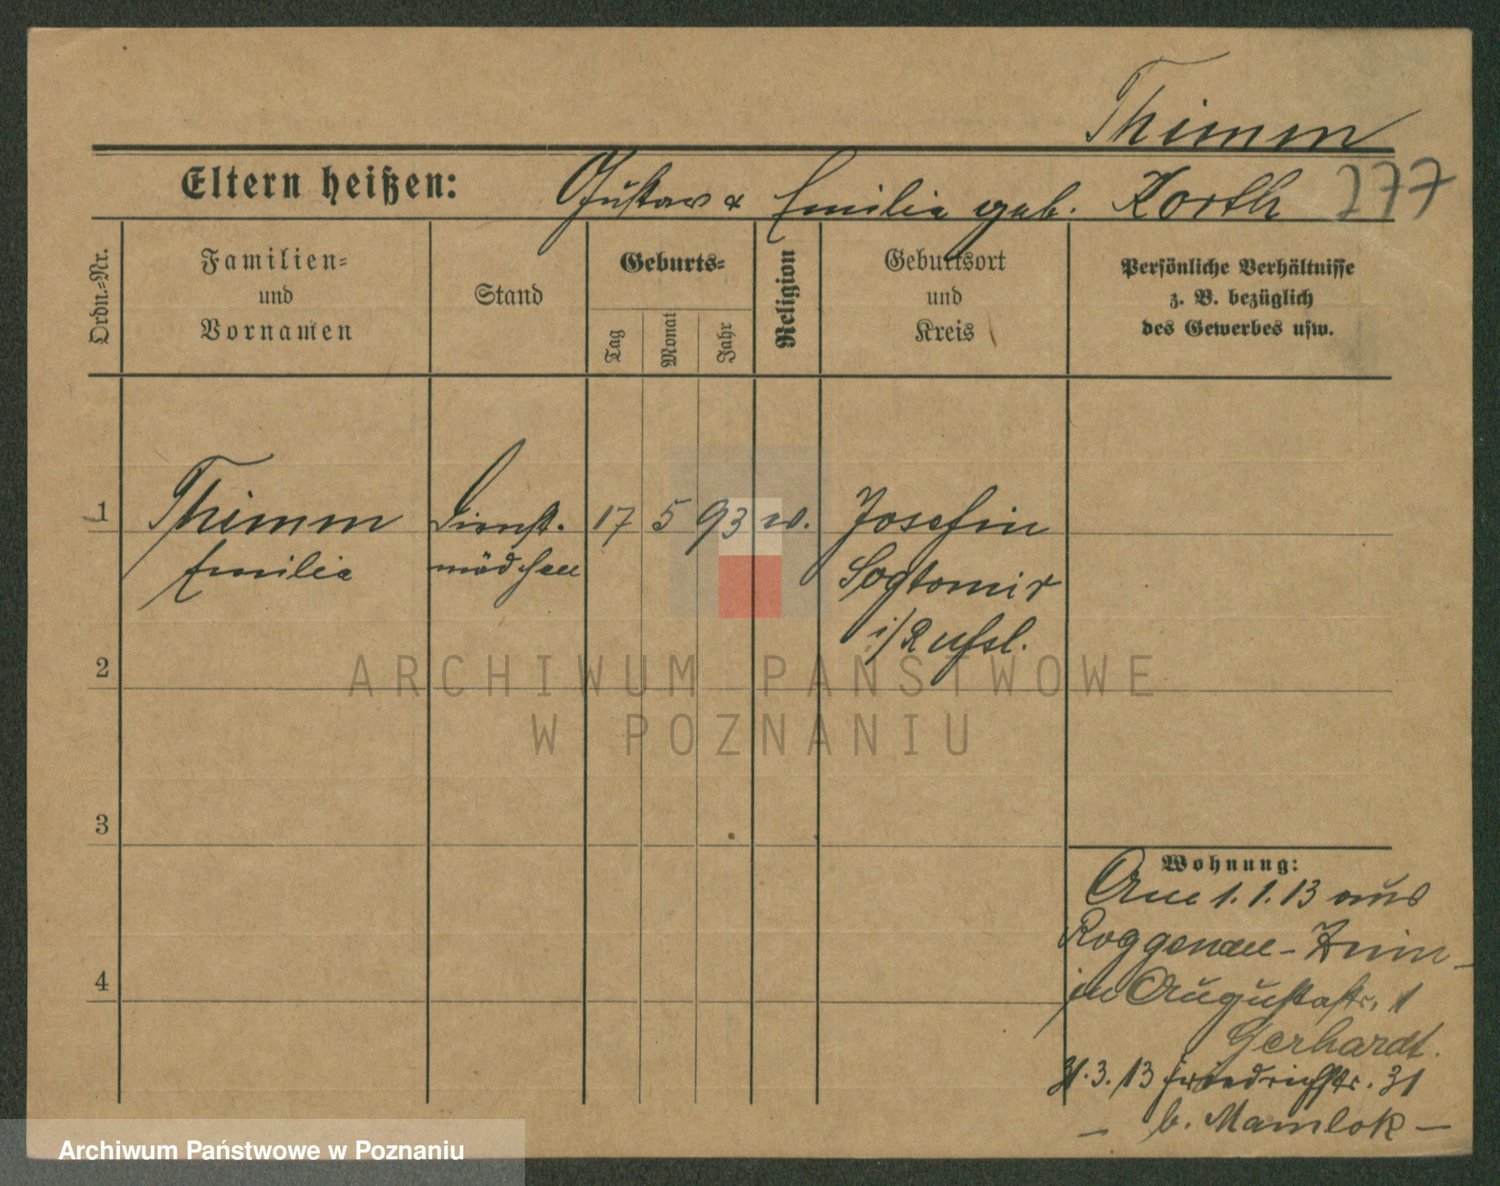 Thimm
Eltern heißen: Gustav & Emilie geb. Korth 277
Ordn.-Nr.
Familien-
und
Vornamen
Stand
Geburts-
Tag
Monat
Jahr
Religion
Geburtsort
und
Kreis
Persönliche Verhältnisse
z. B. bezüglich
des Gewerbes usw.
1 Thimm Dienst- 17 5 93 ev. Josefin
Emilie mädchen
i/Rußl.
2
ARCHIWUM PAŃSTWOWE
W POZNANIU
3
4
Wohnung:
Am 1.1.13 aus
Roggenau -
in Augustastr. 1
Gerhardt.
31.3.13 Friedrichstr. 31
b. Mamlok -
Archiwum Państwowe w Poznaniu